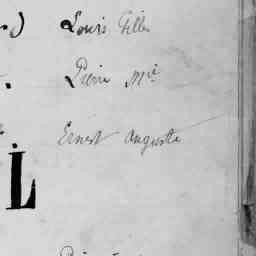 Louis Gilles
Pierre Mie
Ernest Auguste
L